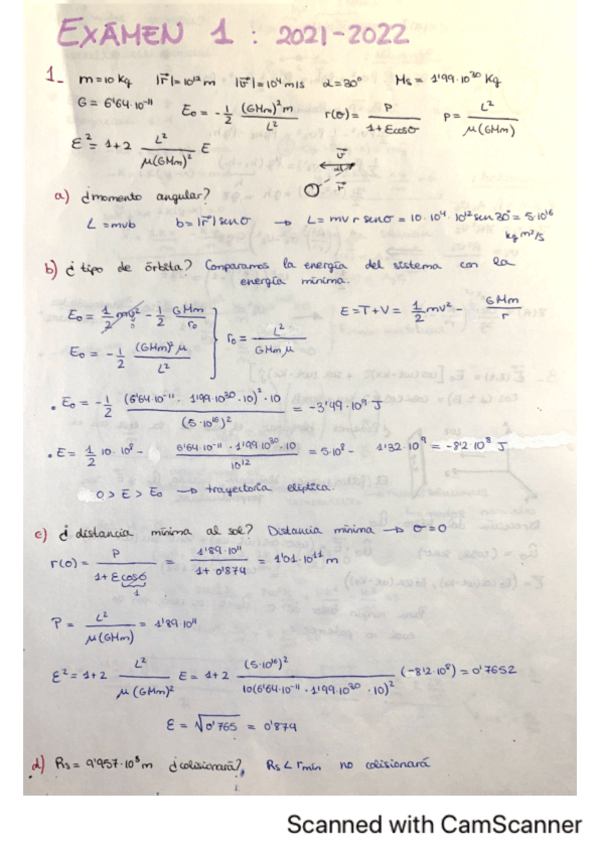 EXAMEN 1 : 2021-2022
1- m=10 Kg |r⃗|=10¹² m |v⃗|=10⁴ m/s α=30° Ms = 1'99·10³⁰ Kg
G = 6'64·10⁻¹¹ E₀ = -1/2 (GMm)²m/L² r(σ) = P/(1+Ɛcosσ) P = L²/μ(GMm)
Ɛ² = 1+2 L²/μ(GMm)² E
v⃗
α
r⃗
a) ¿momento angular?
L = mvb b=|r⃗|senσ → L = mv r senσ = 10·10⁴·10¹² sen30° = 5·10¹⁶ kg m²/s
b) ¿tipo de órbita? Comparamos la energía del sistema con la
energía mínima.
E₀ = 1/2 mv₀² - 1/2 GMm/r₀
E₀ = -1/2 (GMm)²μ/L²
r₀ = L²/GMmμ
E = T+V = 1/2 mv² - GMm/r
• E₀ = -1/2 (6'64·10⁻¹¹·1'99·10³⁰·10)²·10/(5·10¹⁶)² = -3'49·10⁹ J
• E = 1/2 10·10⁸ - 6'64·10⁻¹¹·1'99·10³⁰·10/10¹² = 5·10⁸ - 1'32·10⁹ = -8'2·10⁸ J
0 > E > E₀ → trayectoria elíptica.
c) ¿distancia mínima al sol? Distancia mínima → σ=0
r(0) = P/(1+Ɛcosσ) = 1'89·10¹¹/(1+0'874) = 1'01·10¹¹ m
1
P = L²/μ(GMm) = 1'89·10¹¹
Ɛ² = 1+2 L²/μ(GMm)² E = 1+2 (5·10¹⁶)²/10(6'64·10⁻¹¹·1'99·10³⁰·10)² (-8'2·10⁸) = 0'7652
Ɛ = √0'765 = 0'874
d) Rs = 9'957·10⁸ m ¿colisionará?, Rs < rmín no colisionará
Scanned with CamScanner